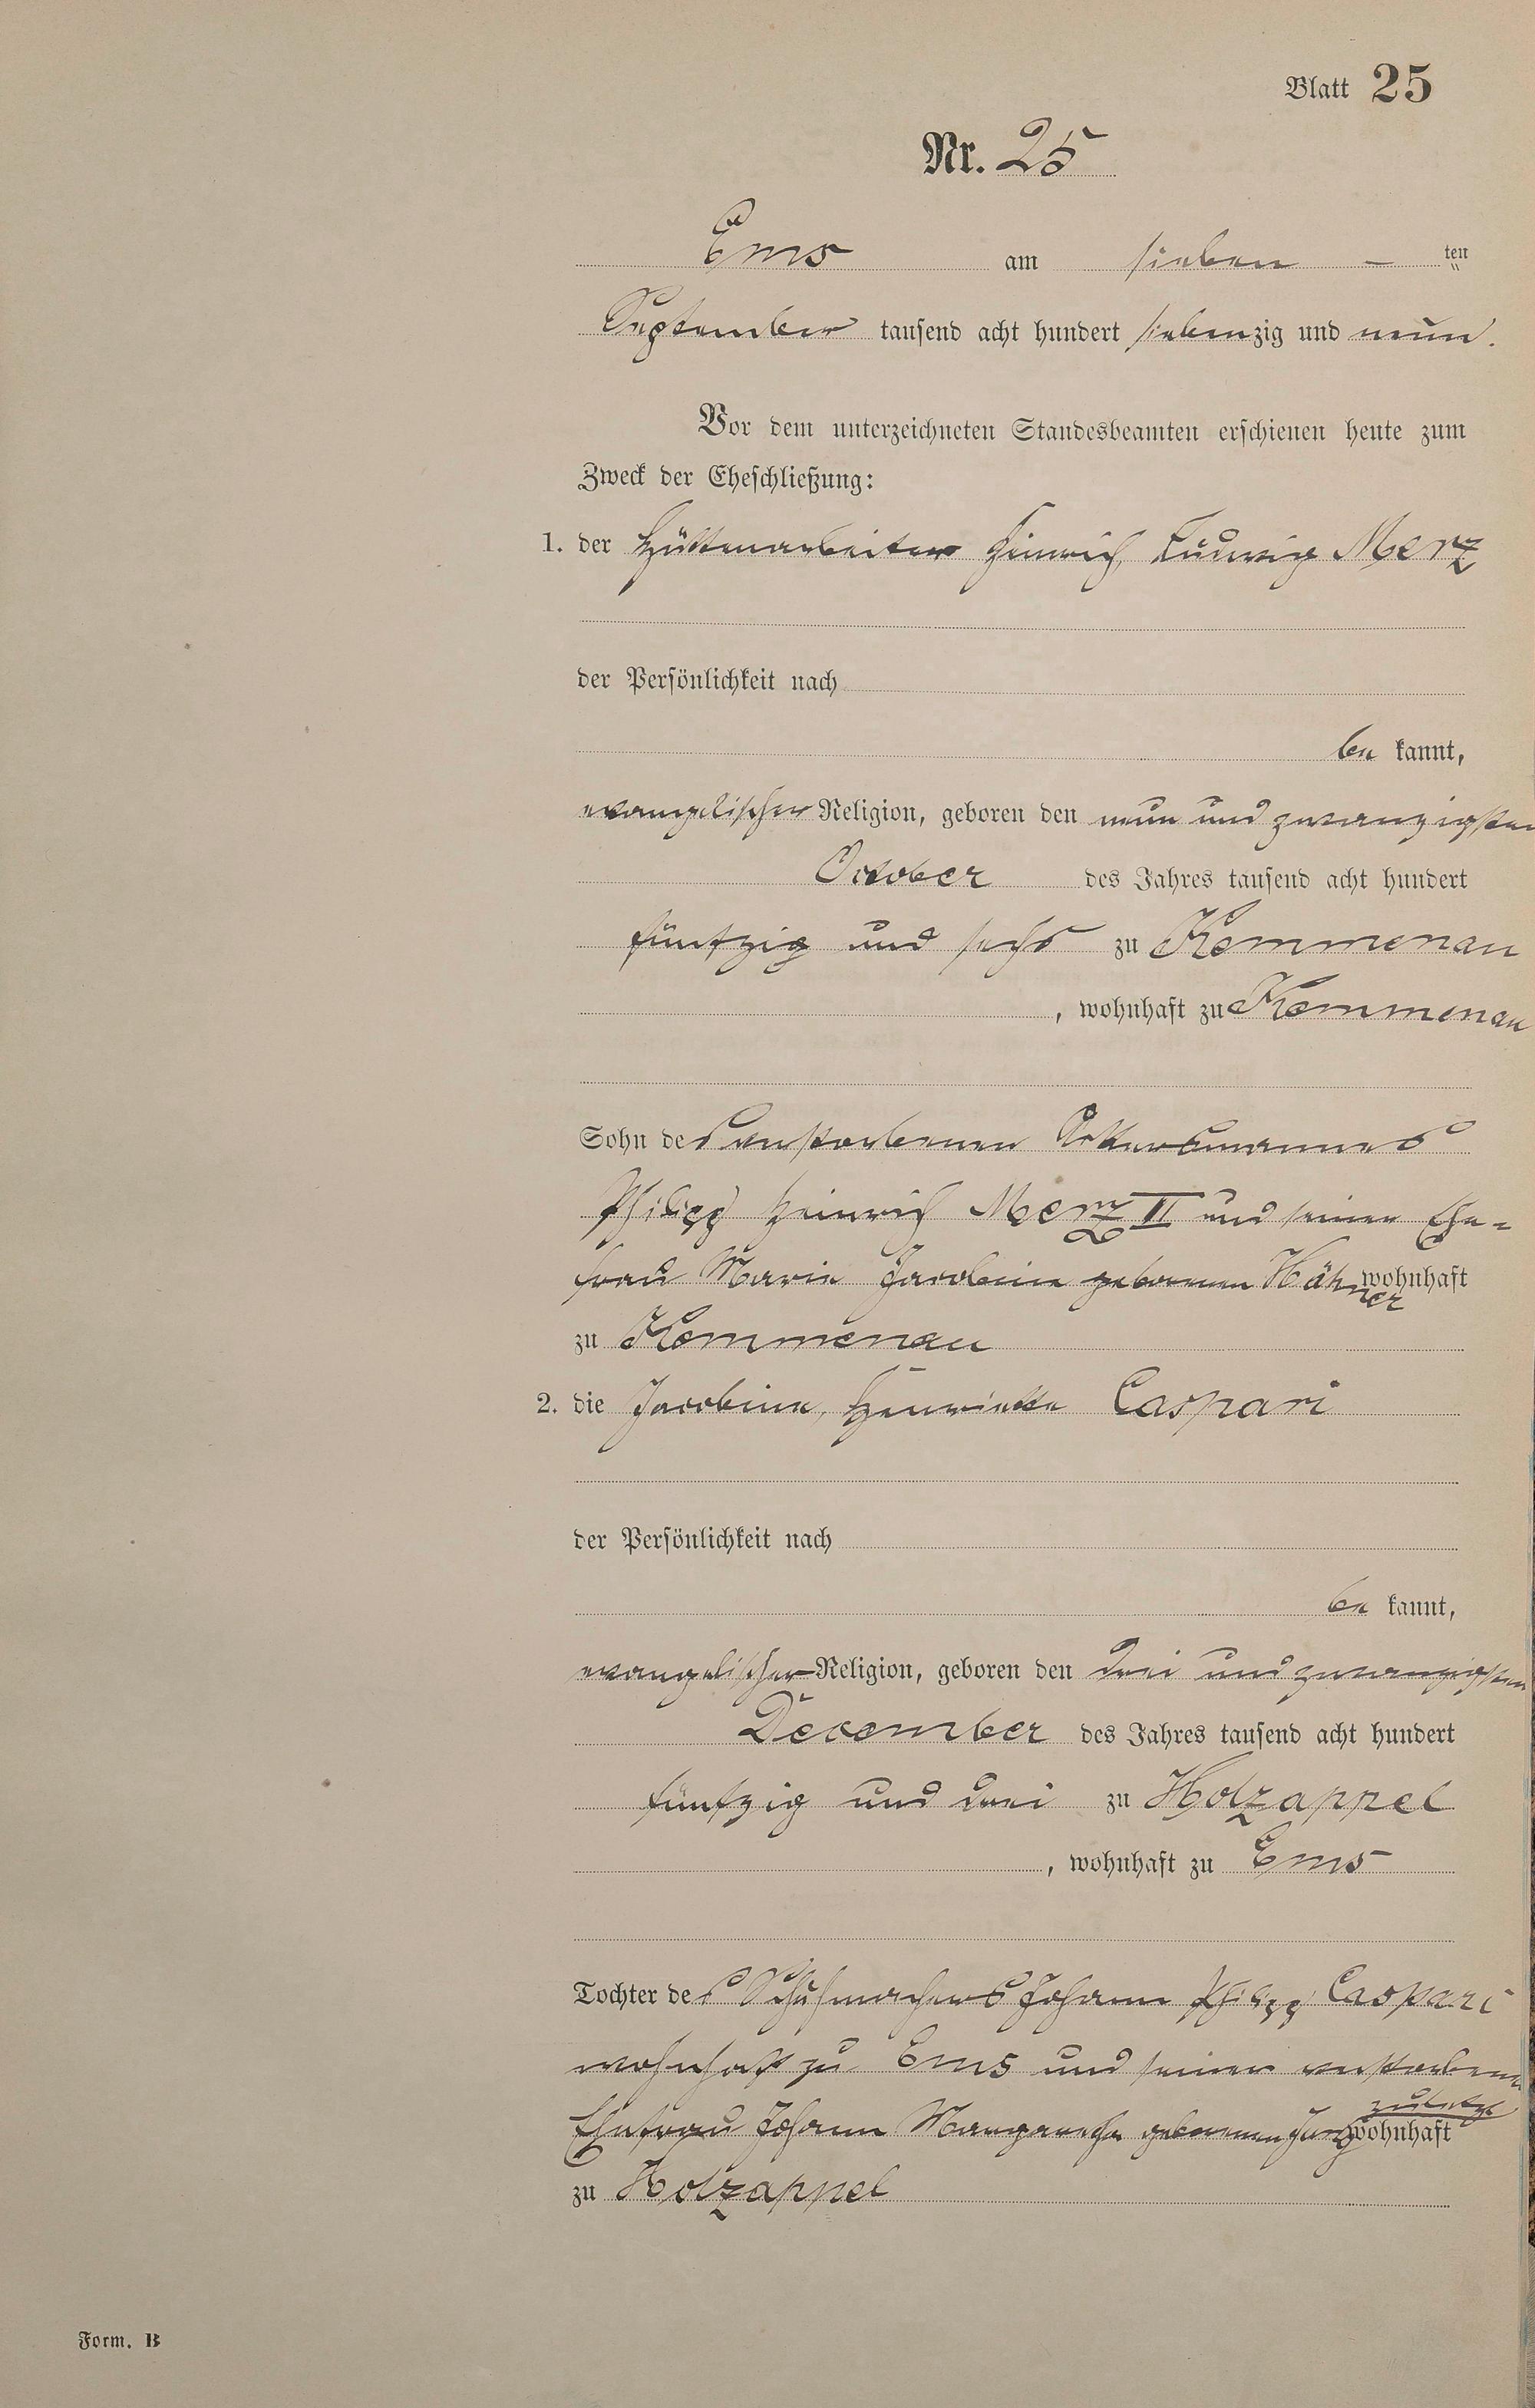 Blatt 25
Nr. 25
Ems am sieben – ten
September tausend acht hundert siebenzig und neun.
Vor dem unterzeichneten Standesbeamten erschienen heute zum
Zweck der Eheschließung:
1. der Hüttenarbeiter Heinrich Ludwig Merz
der Persönlichkeit nach
be kannt,
evangelischer Religion, geboren den neun und zwanzigsten
October des Jahres tausend acht hundert
fünfzig und sechs zu Kemmenau
, wohnhaft zu Kemmenau
Sohn des verstorbenen Ackersmannes
Philipp Heinrich Merz II und seiner Ehe-
frau Marie Jacobine geborenen Hähner wohnhaft
zu Kemmenau
2. die Jacobine, Henriette Caspari
der Persönlichkeit nach
be kannt,
evangelischer Religion, geboren den drei und zwanzigsten
December des Jahres tausend acht hundert
fünfzig und drei zu Holzappel
, wohnhaft zu Ems
Tochter des Schuhmachers Johann Philipp Caspari
wohnhaft zu Ems und seiner verstorbenen
Ehefrau Johann Margarethe geborenen zuletzt wohnhaft
zu Holzappel
Form. B